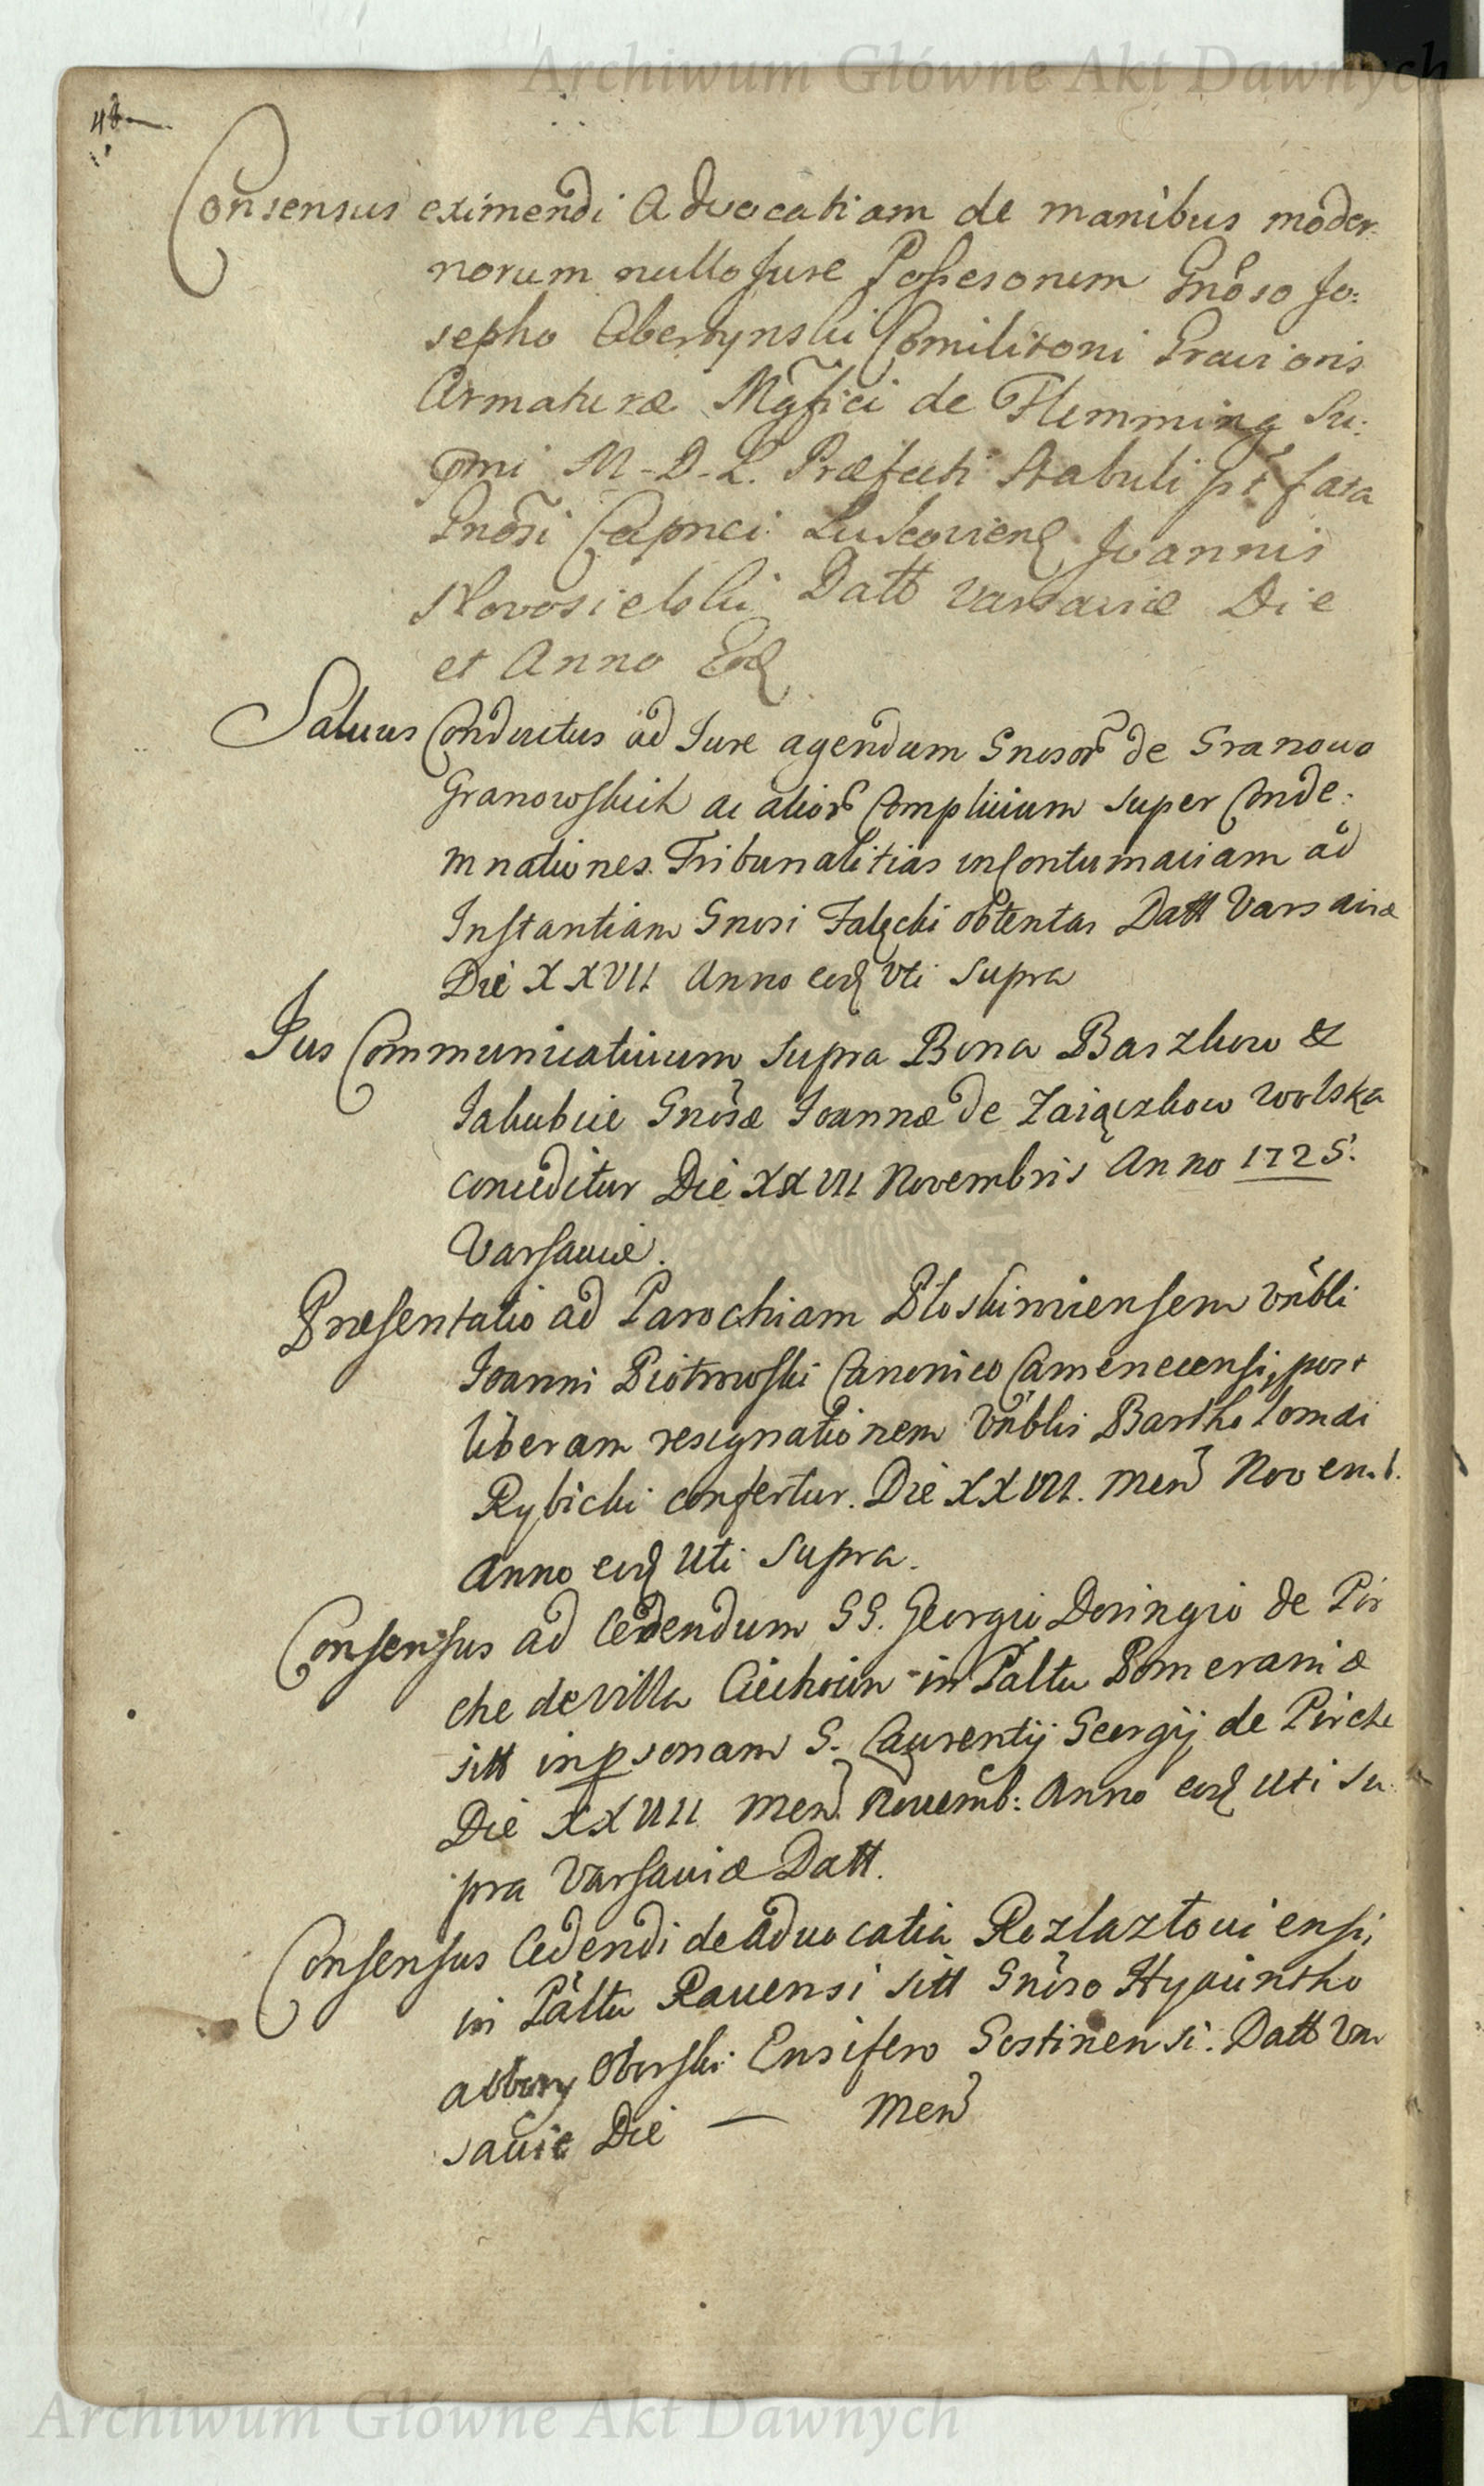 Archiwum Główne Akt Dawnych
48
Consensus eximendi Advocatiam de manibus moder-
norum nullo Jure Possesorum Gnõso Jo:
sepho Obertynski Comilitoni Gravioris
Armaturæ Mgfici de Flemming Su:
pmi M-D-L. Præfecti Stabuli pt fata
Gnõsi Capnei Joannis
Novosielski Datt Varsaviæ Die
et Anno Eod
Salvus Conductus ad Jure agendum Gnosor de Granowo
Granowskich ac alior Complicium super Conde:
mnationes Tribunalitias in Contumaciam ad
Instantiam Gnosi Falęcki obtentas Datt Varsaviæ
Die XXVII Anno eod Uti supra
Jus Communicativum supra Bona Barzkow &
Jakubice Gnosæ Joannæ de Zaiączkow Wolska
conceditur Die XXVII Novembris Anno 1725.
Varsaviæ.
Præsentatio ad Parochiam Ploskirviensem Vnbli
Joanni Piotrowski Canonico Camenecensi, post
liberam resignationem Vnblis Bartholomæi
Rybicki confertur. Die XXVII. Men Novemb.
Anno eod Uti supra.
Consensus ad Cedendum GG. Georgio Doringio de Pir
che de Villa Ciechocin in Paltu Pomeraniæ
sitt in psonam G. Laurentij Georgij de Pirche
Die XXVII Men Novemb: Anno eod Uti su
pra Varsaviæ Datt.
Consensus Cedendi de advocatia Rozlaztoviensi,
in Paltu Ravensi sitt Gnõso Hyacintho
Oborski Ensifero Gostinensi. Datt Var
saviæ Die — Men
Archiwum Główne Akt Dawnych